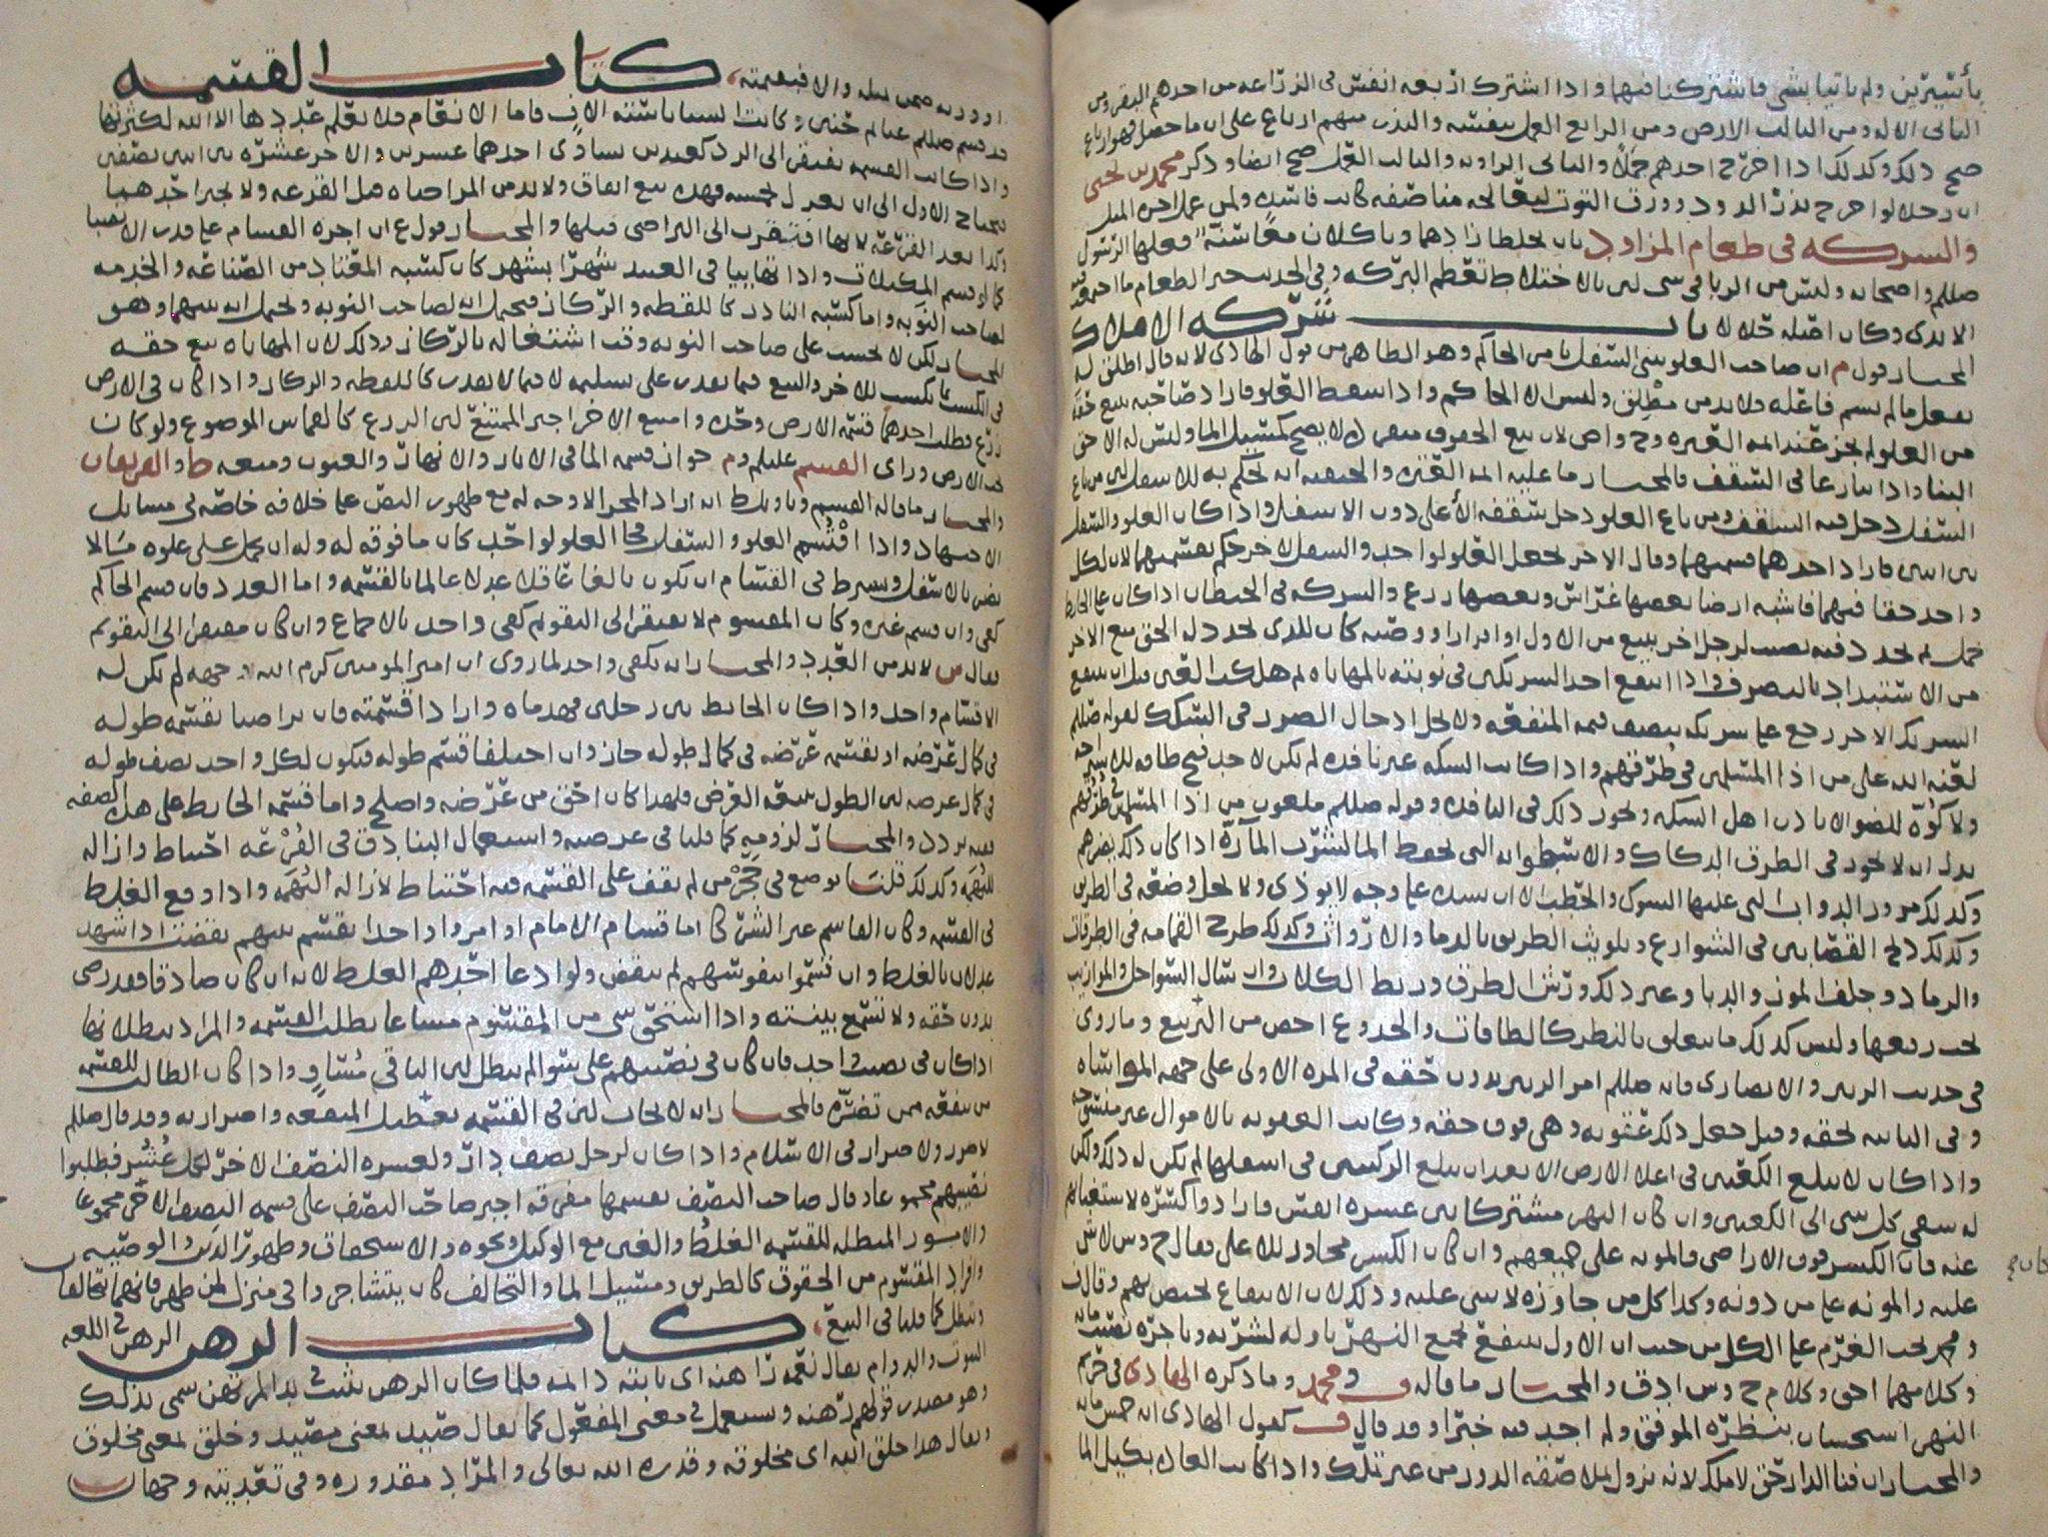 بأسيرين ولم ياتيا بشي فاشتركنا فيهما واذا اشترك اربعه انفس في الزراعه من احدهم البقر ومن
الثاني الاله ومن الثالث الارض ومن الرابع العمل بنفسه والبذر منهم ارباع على ان ما حصل فهو ارباع
صح ذلك وكذلك اذا اخرج احدهم جملا والثاني الراويه والثالث العمل صح ايضا وذكر محمد بن يحيى
ان رجلا لو اخرج بذر الدود وورق التوت ليعالجه مناصفه كانت فاسده ولمن عمل اجره المثل
والشركه في طعام المزاود بان يخلطا زادهما وياكلان معا سنة فعلها الرسول
صللم واصحابه وليس من الربا في شي لان بالاختلاط تعظم البركه وفي الحديث خير الطعام ما اجتمعت فيه
الايدي وكان اصله حلالا باب شركه الاملاك
المختار قول م ان صاحب العلو يبني السفل بامر الحاكم وهو الظاهر من قول الهادي لانه قال اطلق له
بفعل ما لم يسم فاعله ولا بد من مطلق وليس الا الحاكم واذا سقط العلو فاراد صاحبه بيع حقه
من العلو لم يجز عند ائمه العتره
البنا واذا تنازعا في السقف فالمختار ما عليه ائمه العتره والحنفيه انه يحكم به للاسفل
السفل دخل فيه السقف ومن باع العلو دخل سقفه الأعلى دون الاسفل واذا كان العلو والسفل
بين اثنين فاراد احدهما قسمتهما وقال الاخر نجعل العلو لواحد والسفل لاخر حكم بقسمتهما لان لكل
واحد حقا فيهما فاشبه ارضا بعضها غراس وبعضها زرع والشركه في الحيطان اذا كان على الحايط
من الاستبداد بالتصرف واذا انتفع احد الشريكين في نوبته بالمهاياه ثم هلكت العين قبل ان ينتفع
الشريك الاخر رجع على شريكه بنصف قيمه المنفعه ولا يحل ادخال الضرر في السكك لقوله صللم
لعنه الله على من اذا المسلمين في طرقهم واذا كانت السكه غير نافذه لم يكن لاحد فتح طاقه للاستراحه
ولا كوّه للضو الا باذن اهل السكه ويجوز ذلك في النافذه وقوله صللم ملعون من اذا المسلمين في طرقهم
يدل انه لا يجوز في الطرق الدكاك والاسطوانه التي لحفظ الما لشرب الماره اذا كان ذلك يضرهم
وكذلك مرور الدواب التي عليها الشوك والحطب الا ان يشده على وجه لا يوذي ولا يحل وضعه في الطريق
وكذلك ذبح القصابين في الشوارع وتلويث الطريق بالدما والارواث وكذلك طرح القمامه في الطرقات
والرماد وجلف الموز والدبا وغير ذلك ورش الطرق وربط الكلاب وان سال السواحل والموازيب
يجب رفعها وليس كذلك ما يتعلق بالنظر كالطاقات والجذوع اخص من التربيع وما روي
في حديث الزبير والانصاري فانه صللم امر الزبير بدون حقه في المره الاولى على جهه المواساه
وفي الثانيه بحقه وقيل جعل ذلك عقوبه وهي فوق حقه وكانت العقوبه بالاموال غير منسوخه
واذا كان لا يبلغ الكعبين في اعلا الارض الا بعد ان يبلغ الركبتين في اسفلها لم يكن له ذلك ولكن
له سقي كل شي الى الكعبين وان كان النهر مشتركا بين عشره انفس فارادوا كسره لاستغنائهم
عنه فان الكسر فوق الاراضي فالمونه على جميعهم وان كان الكسر محاور للاعلى فقال ح وس لاش
عليه والمونه على من دونه وكذا كل من جاوزه لا شي عليه وذلك لان الانتفاع يختص بهم وقال ف
ومحمد يجب الغرم على الكل من حيث ان الاول ينتفع بجميع النهر
وكلامهما احق وكلام ح وس ادق والمختار ما قاله ف ومحمد وما ذكره الهادي في حريم
النهر استحسان بنظره الموفق ولم اجد فيه خبرا وقد قال ف كقول الهادي انه خمس مايه
والمختار ان فنا الدار حق لا ملك
اوورثه صمن مثله والا فبقيمته، كتاب القسمه
قد قسم صللم غنائم حنين وكانت السبايا سته الاف فاما الانعام فلا يعلم عددها الا الله لكثرتها
واذا كانت القسمه تفتقر الى الرد كعبدين يساوي احدهما عشرين والاخر عشره بين اثنين نصفين
يحتاج الاول الى ان يعدل بخمسه فهذه بيع اتفاق ولا بد من المراضاه قبل القرعه ولا يجبر احدهما
وكذا بعد القرعه لانها افتقرت الى التراضي قبلها والمختار قول ع ان اجره القسام على قدر الانصبا
كما لو قسم المكيلات واذا تهاييا في العبد شهرا بشهر كان كسبه المعتاد من الصناعه والخدمه
لصاحب النوبه واما كسبه النادر كاللقطه والركاز فيحتمل انه لصاحب النوبه ويحتمل انه بينهما وهو
المختار لكن لا يحسب على صاحب النوبه وقت اشتغاله بالركاز وذلك لان المهاياه بيع حقه
في الكسب بما يكسب للاخر والبيع فيما يقدر على تسليمه لا فيما لا يقدر كاللقطه والركاز واذا كان في الارض
زرع فطلب احدهما قسمه الارض وحده وامتنع الاخر اجبر الممتنع لان الزرع كالقماش الموضوع ولو كان
تحت الارض وراى القسم عليلم وم جواز قسمه الما في الابار والانهار والعيون ومنعه ط والفريقان
والمختار ما قاله القسم وتاويل ط انه اراد المجرا لا وجه له مع ظهور النص على خلافه خاصه في مسايل
الاجتهاد واذا اقتسم العلو والسفل فجا العلو لواحد كان ما فوقه له وله ان يحمل على علوه ما لا
يضر بالاسفل ويشرط في القسام ان يكون بالغا عاقلا عدلا عالما بالقسمه واما العدد فان قسم الحاكم
كفى وان قسم غيره وكان المقسوم لا يفتقر الى التقويم كفى واحد بالاجماع وان كان مفتقرا الى التقويم
فقال ص لا بد من العدد والمختار انه يكفي واحد لما روي ان امير المومنين كرم الله وجهه لم يكن له
الا قسام واحد واذا كان الحايط بين رجلين فهدماه وارادا قسمته فان تراضيا بقسمه طوله
في كمال عرضه او بقسمه عرضه في كمال طوله جاز وان اختلفا قسم طوله فيكون لكل واحد نصف طوله
في كمال عرضه لان الطول يتبعه العرض فلهذا كان احق من عرضه واصلح واما قسمه الحايط على هذه الصفه
ففيه تردد والمختار لزومه كما قلنا في عرصته واستعمال البنادق في القرعه احتياط وازاله
للتهمه وكذلك قلنا توضع في حجر من لم يقف على القسمه فيه احتياط لازاله التهمه واذا وقع الغلط
في القسمه وكان القاسم غير الشركا اما قسام الامام او امروا واحدا يقسم بينهم نقضت اذا شهد
عدلان بالغلط وان قسموا بنفوسهم لم ينقض ولو ادعا احدهم الغلط لانه ان كان صادقا فقد رضي
بدون حقه ولا تسمع بينته واذا استحق شي من المقسوم مشاعا بطلت القسمه والمراد بطلانها
اذا كان في نصيب واحد فان كان في نصيبهم على سوا لم يبطل لان الباقي متساو واذا كان الطالب للقسمه
من ينفعه من تضره فالمختار انه لا يجاب لان في القسمه تعطيل المنفعه واضرار به وقد قال صللم
لا ضرر ولا ضرار في الاسلام واذا كان لرجل نصف دار ولعشره النصف الاخر لكل عُشر فطلبوا
نصيبهم مجموعا وقال صاحب النصف نقسمها مفرقه اجبر صاحب النصف على قسمه النصف الاخر مجموعا
والامور المبطله للقسمه الغلط والغبن مع الوكيل ونحوه والاستحقاق وظهور الدين والوصيه
وافراد المقسوم من الحقوق كالطريق ومسيل الما والتحالف كان يتشاجروا في منزل لمن ظهر فانهما يتحالفان
وتبطل كما قلنا في البيع، كتاب الرهن الرهن في اللغه
الثبوت والدوام يقال نعمه راهنه اي ثابته دائمه فلما كان الرهن يثبت في يد المرتهن سمي بذلك
وهو مصدر قولهم رهنه ويستعمل في معنى المفعول كما يقال صيد بمعنى مصيد وخلق بمعنى مخلوق
يقال هذا خلق الله اي مخلوقه وقدره الله تعالى والمراد مقدوره وفي تعديته وجهان